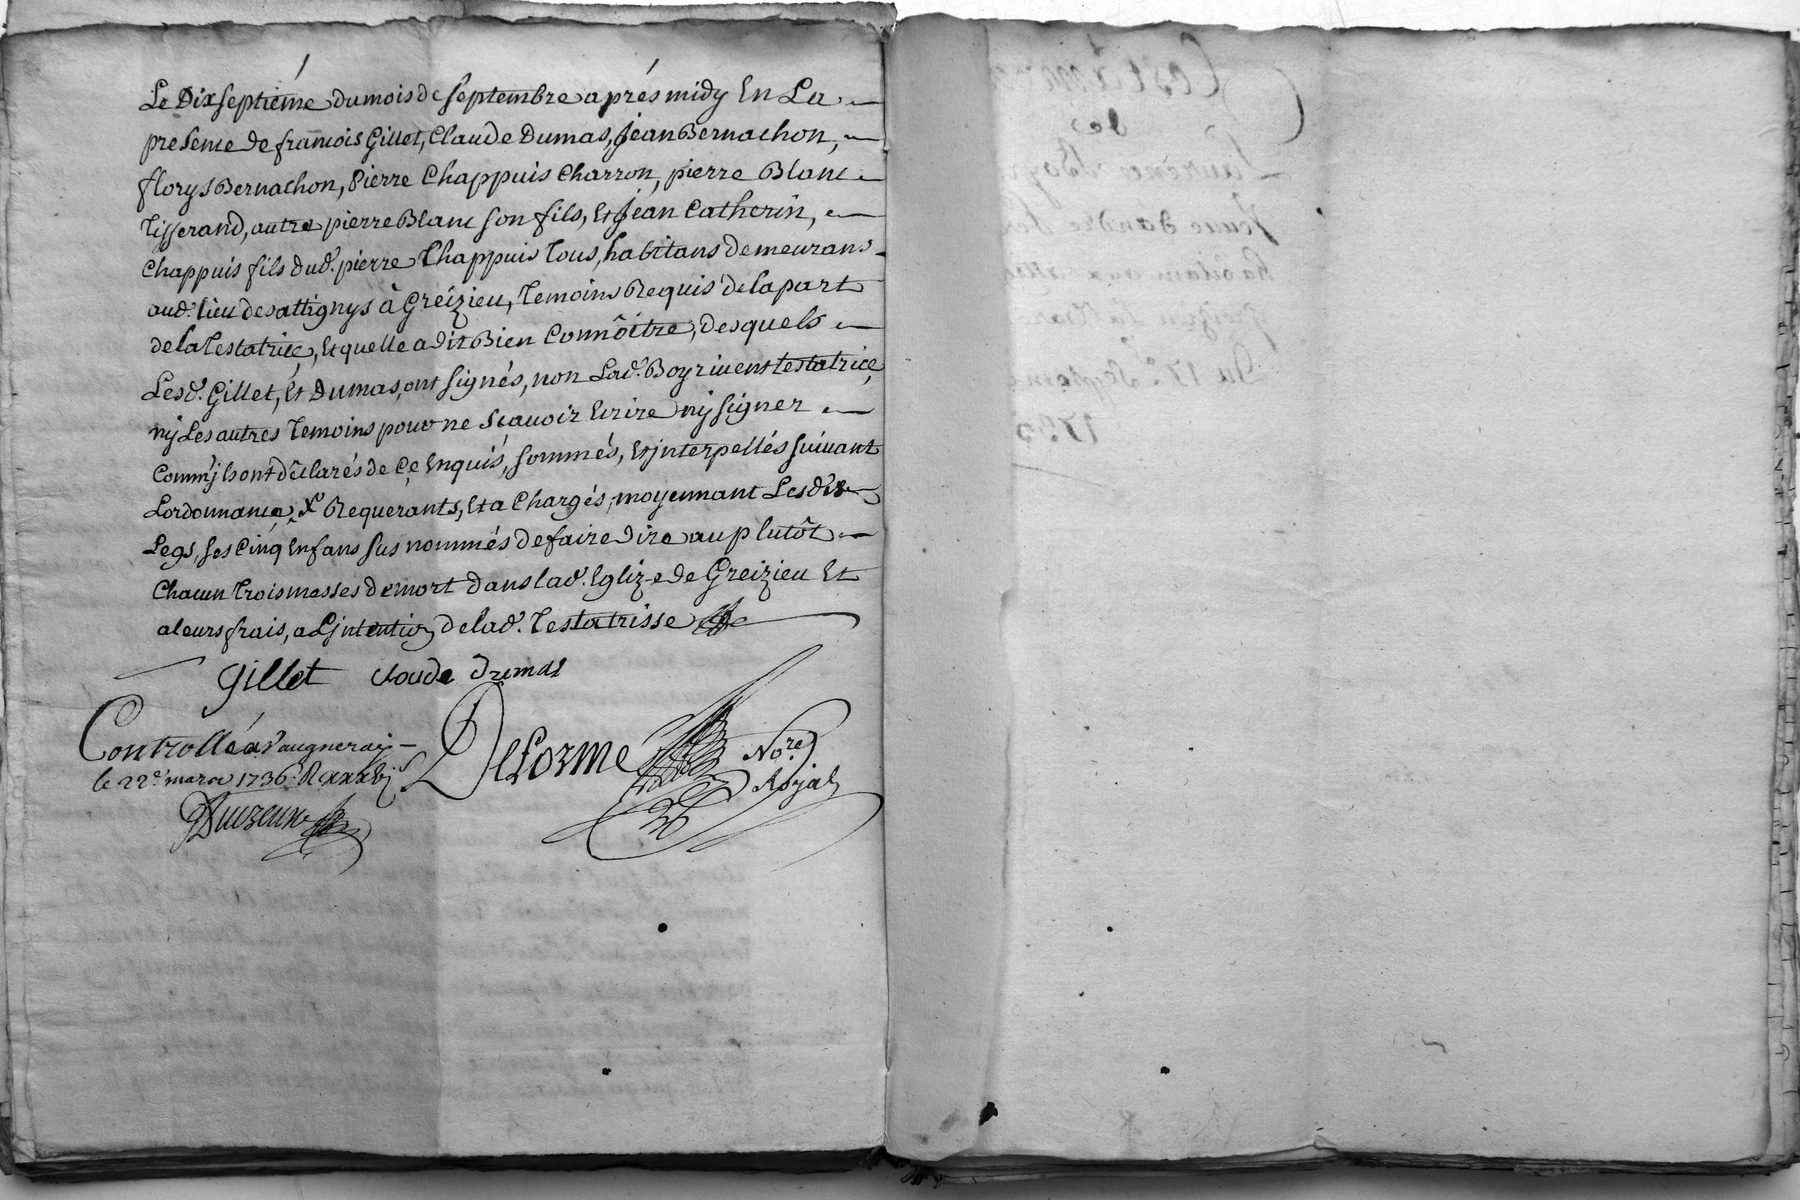 Le Dix septiéme du mois de septembre aprés midy En La
presence de francois Gillet, Claude Dumas, Jean Bernachon,
florys Bernachon, Pierre Chappuis Charron, pierre Blanc
Tisserand, autre pierre Blanc son fils, Et Jean Catherin,
Chappuis fils dud. pierre Chappuis Tous, habitans demeurans
aud. lieu des attignys à Greizieu, Temoins Requis de la part
de la Testatrice, Et quelle a dit Bien Connôitre, desquels
Lesd. Gillet, Et Dumas, ont signés, non Lad. Boyrivent testatrice,
nÿ Les autres Temoins pour ne scavoir Ecrire nÿ signer
Comm'jls ont déclarés de Ce Enquis, sommés, Et jnterpellés suivant
Lordonnance, Requerants, Et a Chargés, moyennant Lesdits
Legs, ses Cinq Enfans sus nommés de faire dire au plutôt
Chacun Trois messes de mort dans lad. Eglize de Greizieu Et
a leurs frais, a L'jntention de lad. Testatrisse
Gillet Claude Dumas
Controllé a Vaugneray
le 22e mars 1736. R
Delorme Nore.
Royal
Testament
de
Laurence Boy
veuve dandre
habitant
Greizieu La Var
Du 17e Septem